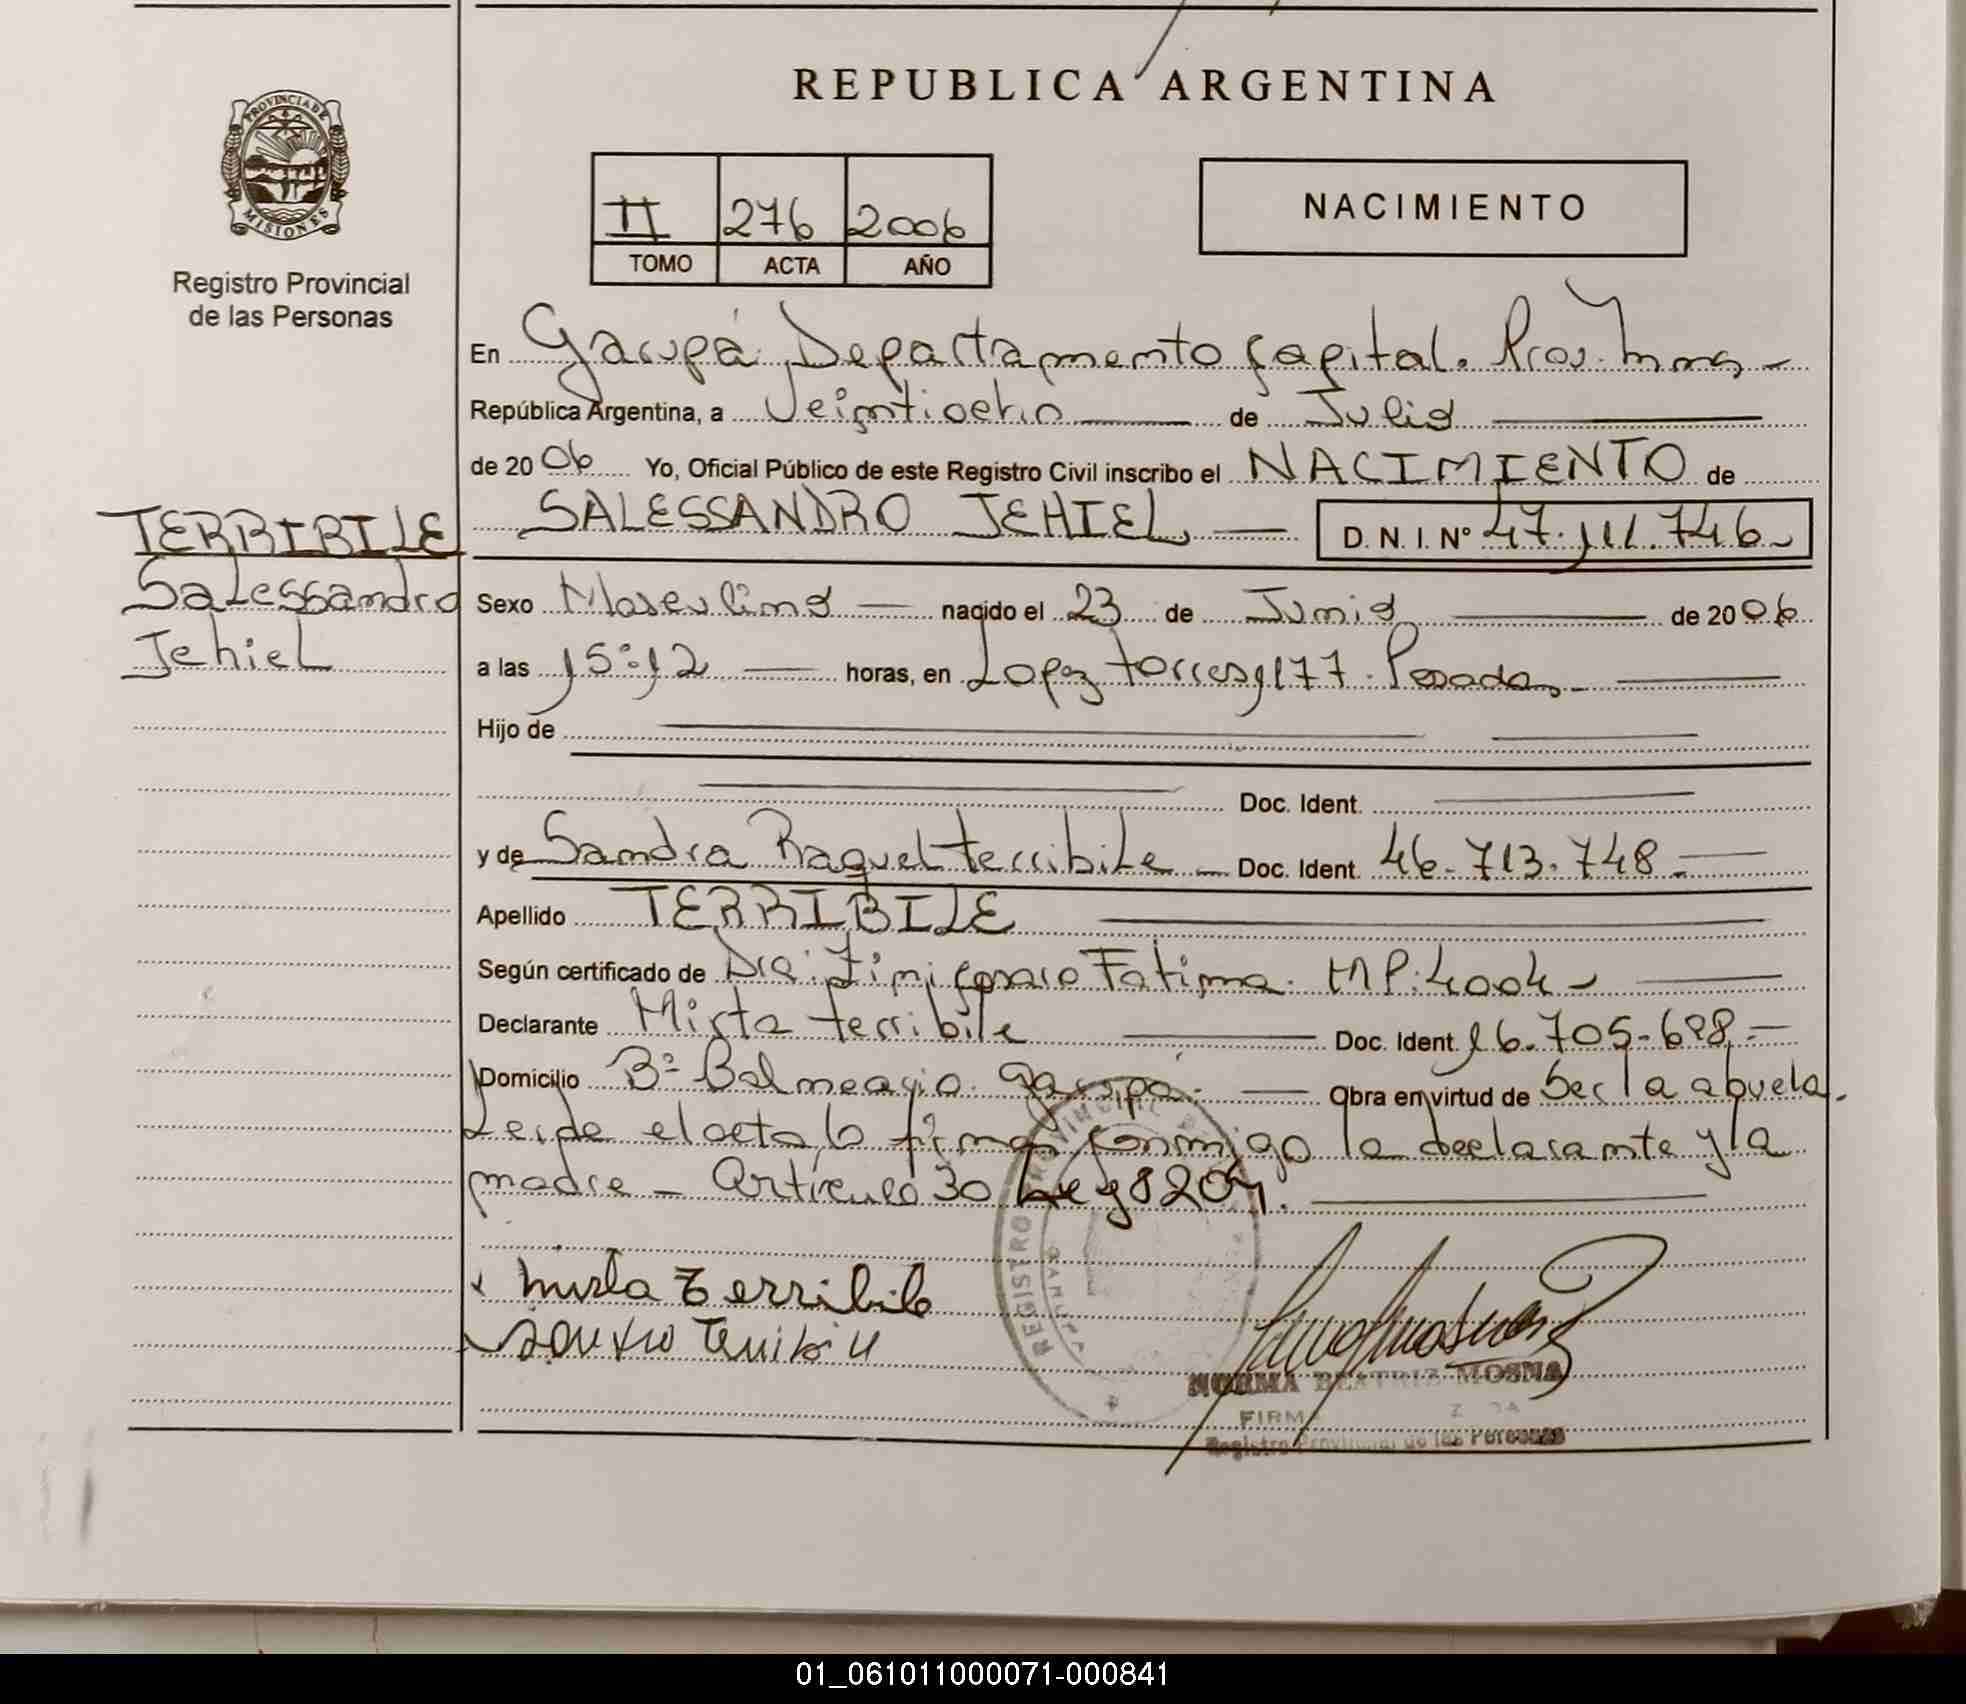 REPUBLICA ARGENTINA
PROVINCIA DE MISIONES
Registro Provincial
de las Personas
II 276 2006
TOMO ACTA AÑO
NACIMIENTO
En Garupá Departamento Capital. Prov. Mnes
República Argentina, a Veintiocho de Julio
de 2006 Yo, Oficial Público de este Registro Civil inscribo el NACIMIENTO de
SALESSANDRO JEHIEL D. N. I. Nº 47.111.746
TERRIBILE
Salessandro
Jehiel
Sexo Masculino nacido el 23 de Junio de 2006
a las 15:12 horas, en Lopez torres 1177. Posadas
Hijo de
Doc. Ident.
y de Sandra Raquel terribile Doc. Ident. 46.713.748
Apellido TERRIBILE
Según certificado de Dra: Fátima MP: 4004
Declarante Mirta terribile Doc. Ident. 16.705.698
Domicilio Bº Balneario. Garupá. Obra en virtud de Ser la abuela.
Leida el acta, la firman conmigo la declarante y la
madre - Artículo 30 Ley 8204.
Mirta Terribile
NORMA BEATRIZ MOSNA
Registro Provincial de las Personas
REGISTRO PROVINCIAL
01_061011000071-000841